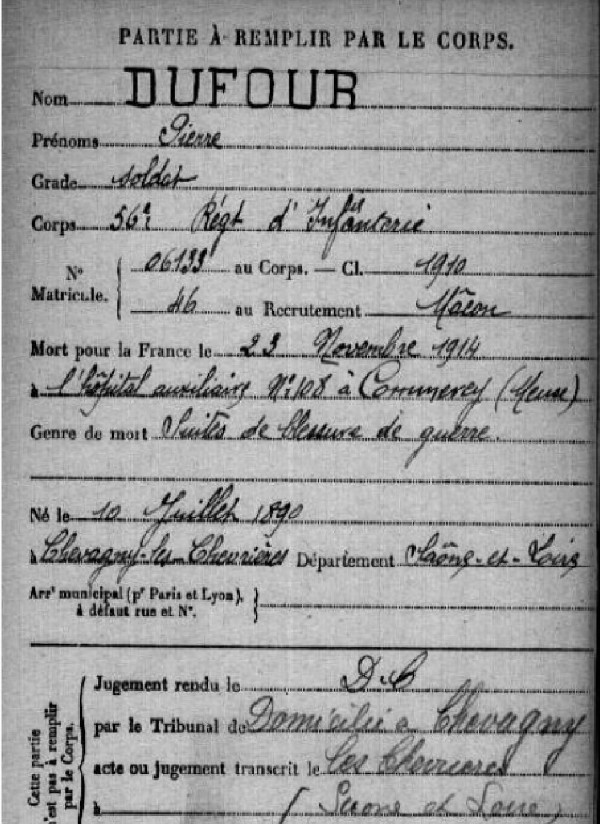 PARTIE À REMPLIR PAR LE CORPS.
Nom DUFOUR
Prénoms Pierre
Grade soldat
Corps 56e Régt d'Infanterie
N° Matricule. { 06133 au Corps. — Cl. 1910
46 au Recrutement Mâcon
Mort pour la France le 23 Novembre 1914
à l'hôpital auxiliaire N° 108 à Commercy (Meuse)
Genre de mort Suites de blessure de guerre.
Né le 10 Juillet 1890
à Chevagny-les-Chevrières Département Saône-et-Loire
Arrt municipal (pr Paris et Lyon), à défaut rue et N°. }
Cette partie n'est pas à remplir par le Corps.
Jugement rendu le D.C
par le Tribunal de Domicilié à Chevagny
acte ou jugement transcrit le les Chevrieres
à (Saone et Loire)